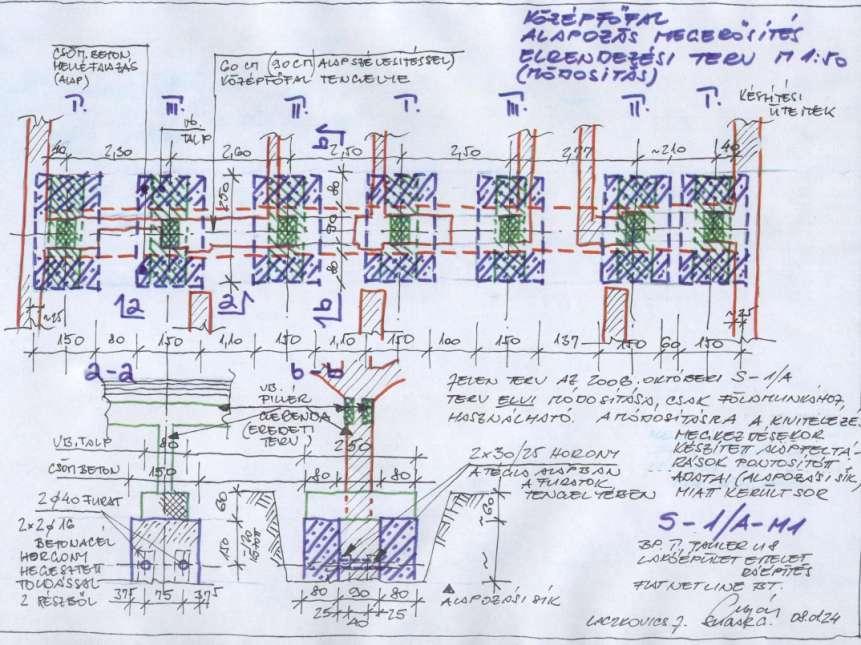 KÖZÉPFŐFAL
ALAPOZÁS MEGERŐSÍTÉS
ELRENDEZÉSI TERV M 1:50
(MÓDOSÍTÁS)
CSÖM. BETON
(ALAP)
60 CM (90 CM ALAPSZÉLESÍTÉSSEL)
KÖZÉPFŐFAL TENGELYE
I. III. II. I. III. II. I.
KÉSZÍTÉSI
ÜTEMEK
VB.
TALP
40 2,30 2,60 2,50 2,50 2,77 ~2,10 40
b
250 80 90 80
2 2 b
~25 ~25
150 80 150 1,10 150 1,10 150 100 150 137 150 60 150
2-2 b-b
VB.
PILLÉR
GERENDA
(EREDETI
TERV)
JELEN TERV AZ 2008. OKTÓBERI S-1/A
TERV ELVI MÓDOSÍTÁSA, CSAK FÖLDMUNKÁHOZ
HASZNÁLHATÓ. A MÓDOSÍTÁSRA A KIVITELEZÉS
MEGKEZDÉSEKOR
KÉSZÍTETT ALAPFELTÁ-
RÁSOK PONTOSÍTOTT
ADATAI (ALAPOZÁSI SÍK)
MIATT KERÜLT SOR
VB. TALP 80 250
CSÖM BETON 150 80 80
2x30/25 HORONY
A TÉGLA ALAPBAN
A FURATOK
TENGELYÉBEN
2 Ø40 FURAT
2x2 Ø 16
BETONACÉL
HORGONY
HEGESZTETT
TOLDÁSSAL
2 RÉSZBŐL
60 150 ~60
37⁵ 75 37⁵
80 90 80
25 40 25
ALAPOZÁSI SÍK
S-1/A-M1
LAKÓÉPÜLET EMELET
RÁÉPÍTÉS
FLATNETLINE BT.
LACZKOVICS J.